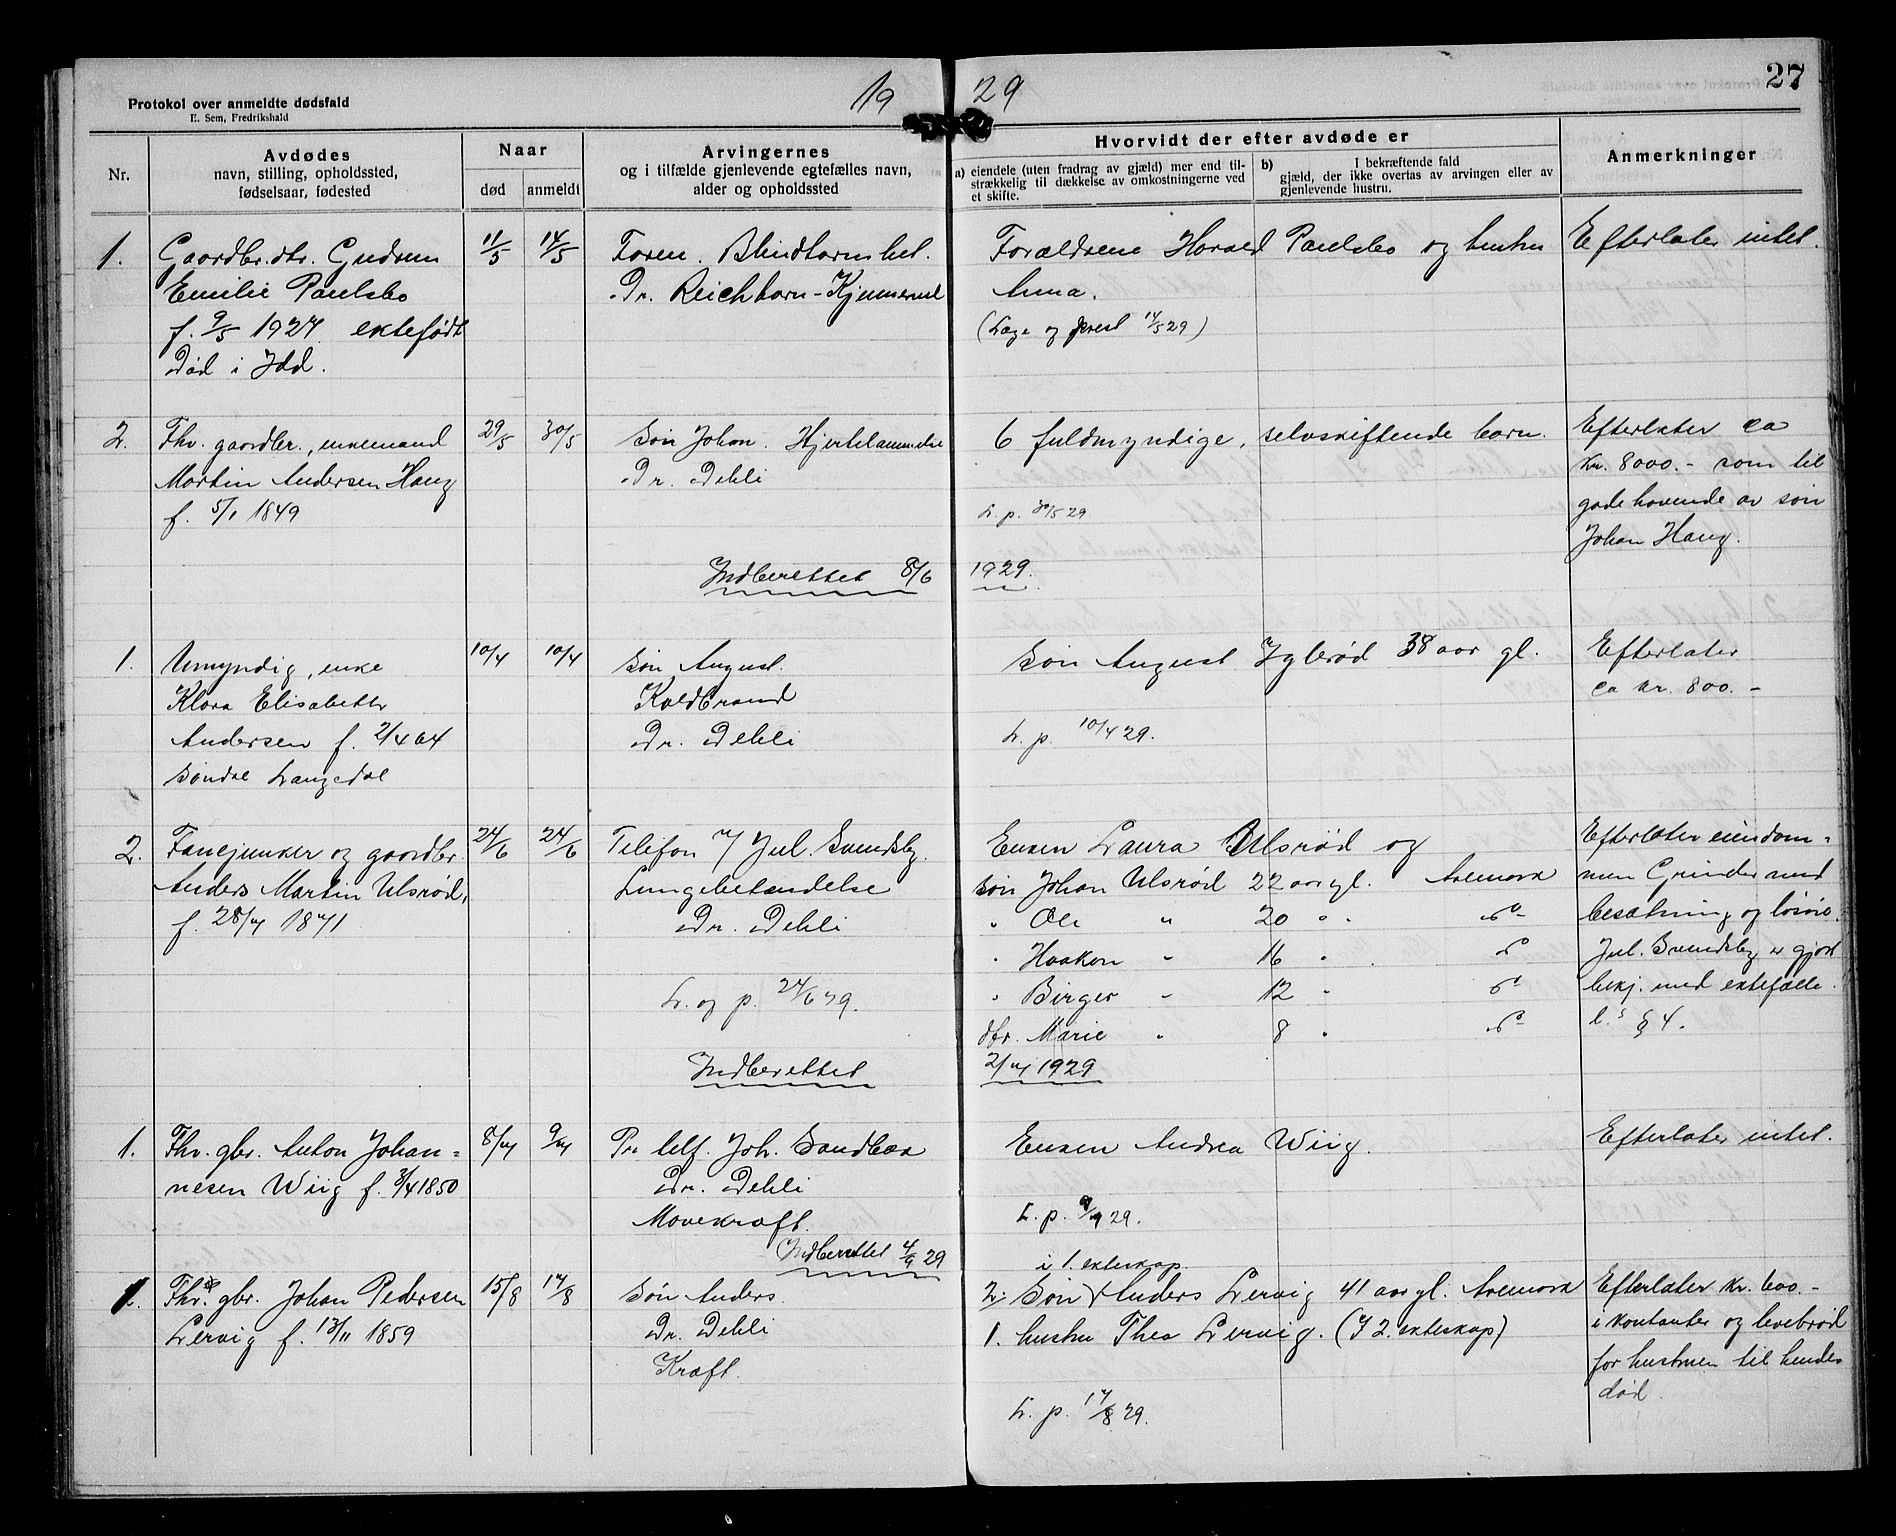 19 29
27
Protokol over anmeldte dødsfald
E. Sem, Fredrikshald
Nr.
Avdødes
navn, stilling, opholdssted,
fødselsaar, fødested
Naar
død anmeldt
Arvingernes
og i tilfælde gjenlevende egtefælles navn,
alder og opholdssted
Hvorvidt der efter avdøde er
a) eiendele (uten fradrag av gjæld) mer end til-
strækkelig til dækkelse av omkostningerne ved
et skifte.
b) I bekræftende fald
gjæld, der ikke overtas av arvingen eller av
gjenlevende hustru.
Anmerkninger
1. Gaardbr. dtr. Gudrun 11/5 14/5 Faren. Blindtarmsbet. Forældrene Harald Paulsbo og hustru Efterlater intet.
Emilie Paulsbo Dr. Reichborn-Kjennerud Anna.
f. 9/5 1927 ektefødt (Læge og prest 14/5 29)
Død i Idd.
2. Fhv. gaardbr., enkemand 29/5 30/5 Søn Johan. Hjertelammelse 6 fuldmyndige, selvskiftende barn. Efterlater ca
Martin Andersen Haug Dr. Dehli kr. 8000.- som til
f. 5/1 1849 L. p. 30/5 29 gode havende av søn
Johan Haug.
Indberettet 8/6 1929.
1. Umyndig, enke 10/4 10/4 Søn August. Søn August Iglerød 38 aar gl. Efterlater
Klara Elisabeth Koldbrand ca kr. 800.-
Andersen f. 2/4 64 Dr. Dehli L. p. 10/4 29.
Søndre Langedal
2. Fanejunker og gaardbr. 24/6 24/6 Telefon v/ Jul. Svendsby. Enken Laura Ulsrød og Efterlater eiendom=
Anders Martin Ulsrød, Lungebetendelse Søn Johan Ulsrød 22 aar gl. Aremark men Grinder med
f. 28/7 1871 Dr. Dehli " Ole " 20 " " do besætning og løsøre.
" Haakon " 16 " do Jul. Svendsby er gjort
L. og p. 24/6 29. " Birger " 12 " do bekj. med ektefælle
dtr. Marie " 8 " do l.s § 4.
Indberettet 2/7 1929
1. Fhv. gbr. Anton Johan= 8/7 9/7 Pr. telf. Joh. Sandbæk Enken Andrea Wiig. Efterlater intet.
nesen Wiig f. 3/4 1850 Dr. Dehli
Mavekræft. L. p. 9/7 29.
Indberettet 4/9 29
i 1. ekteskap
1. Fhv. gbr. Johan Pedersen 15/8 17/8 Søn Anders 2. Søn Anders Lervig 41 aar gl. Aremark Efterlater kr. 600.-
Lervig f. 13/11 1859 Dr. Dehli 1. hustru Thea Lervig. (I 2. ekteskap) i kontanter og levebrød
Kræft. for hustruen til hendes
død.
L. p. 17/8 29.